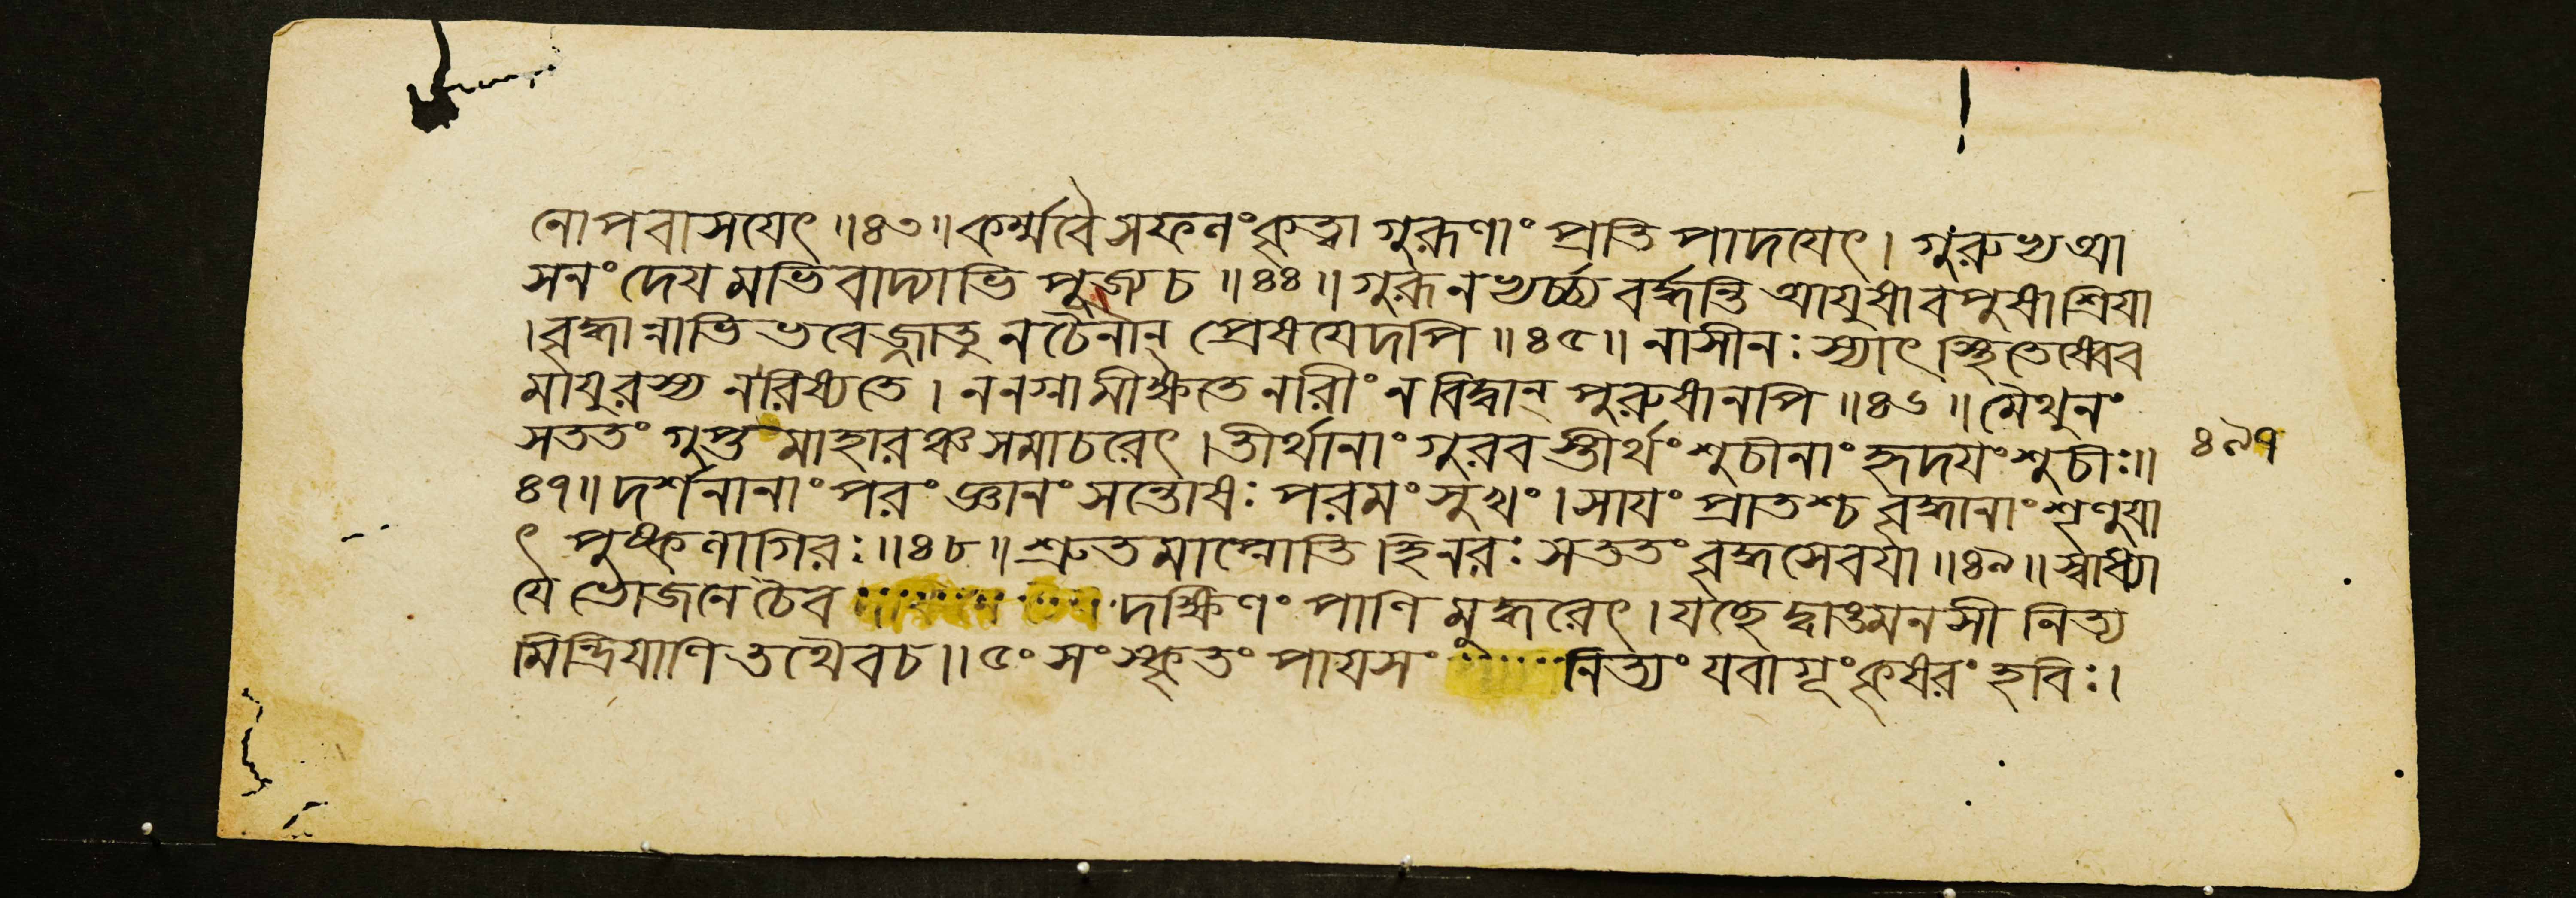 নোপবাসযেৎ ॥৪৩॥ কর্ম্মবৈ সফলং কৃত্বা গুরূণাং প্রতিপাদযেৎ । গুরুভ্য আ
সনং দেযমভিবাদ্যাভিপূজ্য চ ॥৪৪॥ গুরূনভ্যর্চ্চ্য বর্দ্ধন্তি আযুষা বপুষা শ্রিযা
। বৃদ্ধান্নাভিভবেজ্জাতু নচৈনান্ প্রেষযেদপি ॥৪৫॥ নাসীনঃ স্যাৎ স্থিতেষ্বেব
মাযুরস্য নরিষ্যতে । ননগ্নামীক্ষতে নারীং নবিদ্বান্ পুরুষানপি ॥৪৬॥ মৈথুনং
সততং গুপ্তমাহারঞ্চ সমাচরেৎ । তীর্থানাং গুরবস্তীর্থং শুচীনাং হৃদযং শুচীঃ॥
৪৭॥ দর্শনানাং পরং জ্ঞানং সন্তোষঃ পরমং সুখং । সাযং প্রাতশ্চ বৃদ্ধানাং শৃণুযা
ৎ পুষ্কলাগিরঃ ॥৪৮॥ শ্রুতমাপ্নোতি হিনরঃ সততং বৃদ্ধসেবযা ॥৪৯॥ স্বাধ্যা
যে ভোজনে চৈব দক্ষিণং পাণিমুদ্ধরেৎ । যচ্ছেদ্বাঙমনসী নিত্য
মিন্দ্রিযাণি তথৈবচ ॥ ৫০ সংস্কৃতং পাযসং নিত্যং যবাগূং কৃষরং হবিঃ ।
৪৯৭